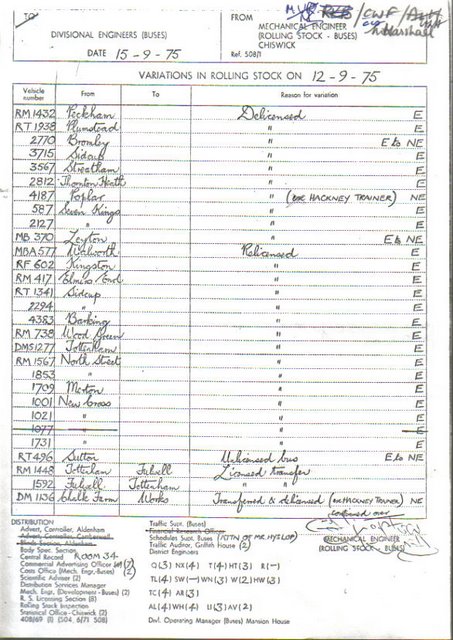 TO
DIVISIONAL ENGINEERS (BUSES)
DATE 15-9-75
FROM
MECHANICAL ENGINEER
(ROLLING STOCK - BUSES)
CHISWICK
Ref. 508/1
/CWF/
Marshall
VARIATIONS IN ROLLING STOCK ON 12-9-75
Vehicle number From To Reason for variation
RM 1432 Peckham Delicensed E
RT 1938 Plumstead " E
2770 Bromley " E to NE
3715 Sidcup " E
3567 Streatham " E
2812 Thornton Heath " E
4187 Poplar " (one HACKNEY TRAINER) NE
587 Seven Kings " E
2127 " " E
MB 370 Leyton " E to NE
MBA 577 Walworth Relicensed E
RF 602 Kingston " E
RM 417 Elmers End " E
RT 1341 Sidcup " E
2294 " " E
4383 Barking " E
RM 738 Wood Green " E
DMS 1277 Tottenham " E
RM 1567 North Street " E
1853 " " E
1709 Merton " E
1001 New Cross " E
1021 " " E
1077 " " E
1731 " " E
RT 496 Sutton Unlicensed bus E to NE
RM 1448 Tottenham Fulwell Licensed transfer E
1592 Fulwell Tottenham " " E
DM 1136 Chalk Farm Works Transferred & delicensed (ex HACKNEY TRAINER) NE
continued over
DISTRIBUTION
Advert. Controller, Aldenham
Advert. Controller, Camberwell
Body Spec. Section
Central Record ROOM 34
Commercial Advertising Officer (7)
Costs Office (Mech. Engr.-Buses) (2)
Scientific Adviser (2)
Distribution Services Manager
Mech. Engr. (Development - Buses) (2)
R. S. Licensing Section (8)
Rolling Stock Inspection
Statistical Office - Chiswick (2)
408/69 (1) (504 6/71 508)
Traffic Supt. (Buses)
Schedules Supt. Buses (ATTN OF MR HYSLOP)
Traffic Auditor, Griffith House (2)
District Engineers
Q(3) NX(4) T(4) HT(3) R(-)
TL(4) SW(-) WN(3) W(2) HW(3)
TC(4) AR(3)
AL(4) WH(4) U(3) AV(2)
Divl. Operating Manager (Buses) Mansion House
MECHANICAL ENGINEER
(ROLLING STOCK - BUSES)